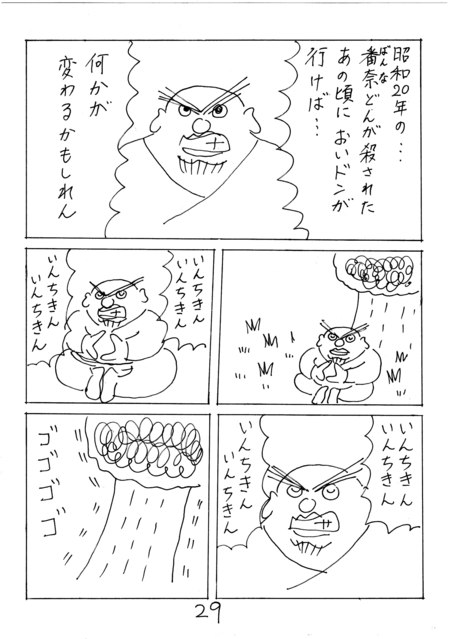 昭和20年の…
番奈どんが殺された
ばんな
あの頃に おいドンが
行けば…
何かが
変わるかもしれん
いんちきん
いんちきん
いんちきん
いんちきん
いんちきん
いんちきん
いんちきん
いんちきん
ゴゴゴゴ
29